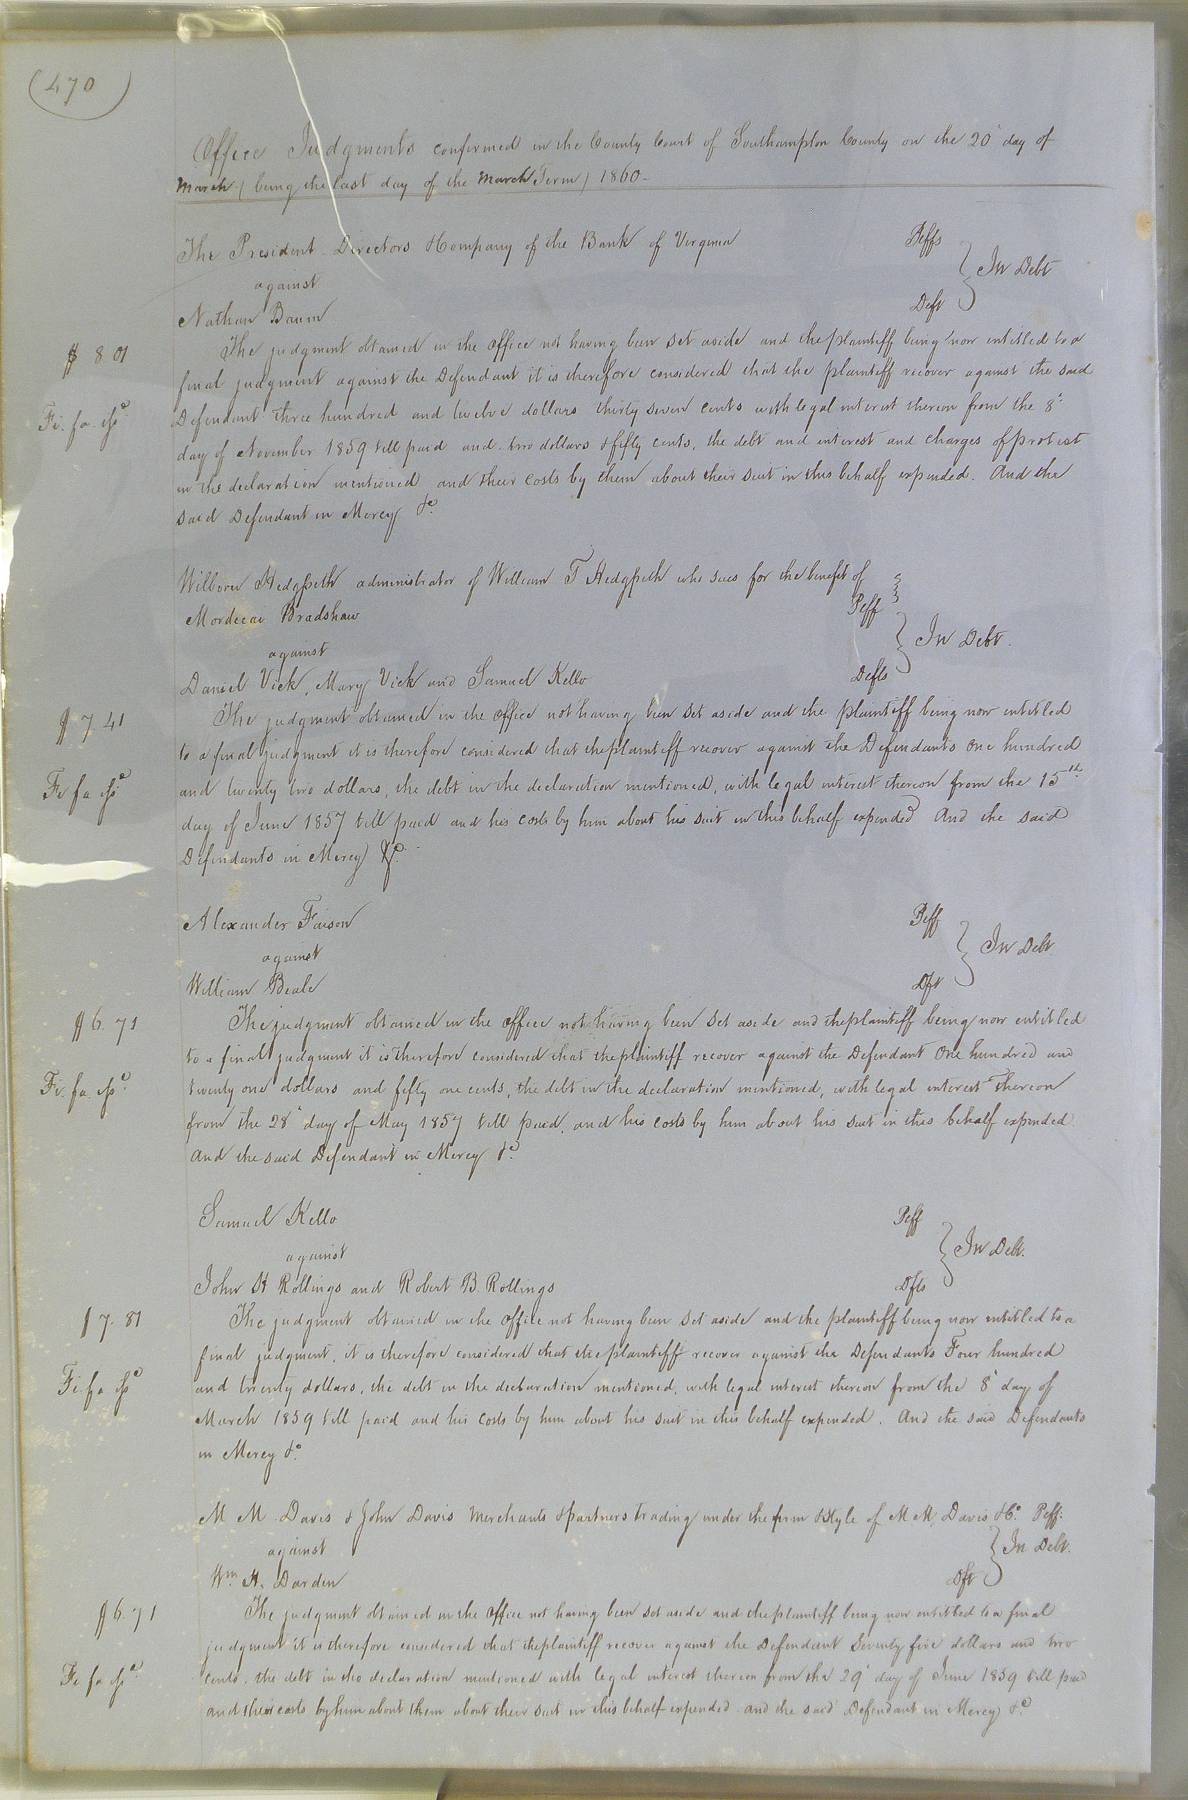 (470)
Office Judgments confirmed in the County Court of Southampton County on the 20" day of
March (being the last day of the March Term) 1860-
The President Directors &Company of the Bank of Virginia Peffs
against In Debt
Nathan Baum Deft
The judgment obtained in the office not having been set aside and the plaintiff being now entitled to a
$ 8 01
final judgment against the Defendant it is therefore considered that the plaintiff recover against the said
Defendant three hundred and twelve dollars thirty seven cents with legal interest thereon from the 8"
Fi. fa.
day of November 1859 till paid and two dollars & fifty cents, the debt and interest and charges of protest
in the declaration mentioned and their costs by them about their suit in this behalf expended. And the
said Defendant in Mercy &c.
Wilborn Hedgpeth administrator of William T Hedgpeth who sues for the benefit of
Mordecai Bradshaw Peff
against In Debt.
Daniel Vick, Mary Vick and Samuel Kello Defts
The judgment obtained in the office not having been set aside and the plaintiff being now entitled
$ 7 41
to a final judgment it is therefore considered that the plaintiff recover against the Defendants one hundred
and twenty two dollars, the debt in the declaration mentioned, with legal interest thereon from the 15th
Fi fa
day of June 1857 till paid and his costs by him about his suit in this behalf expended And the said
Defendants in Mercy &c.
Alexander Faison Peff
against In Debt
William Beale Dft
The judgment obtained in the office not having been set aside and the plaintiff being now entitled
$ 6. 71
to a final judgment it is therefore considered that the plaintiff recover against the Defendant One hundred and
twenty one dollars and fifty one cents, the debt in the declaration mentioned, with legal interest thereon
Fi. fa.
from the 28" day of May 1857 till paid, and his costs by him about his suit in this behalf expended
And the said Defendant in Mercy &c.
Samuel Kello Peff
against In Debt.
John H Rollings and Robert B. Rollings Dfts
The judgment obtained in the office not having been set aside and the plaintiff being now entitled to a
$ 7. 81
final judgment, it is therefore considered that the plaintiff recover against the Defendants Four hundred
and twenty dollars, the debt in the declaration mentioned, with legal interest thereon from the 8" day of
Fi. fa
March 1859 till paid and his costs by him about his suit in this behalf expended. And the said Defendants
in Mercy &c.
M M Davis & John Davis Merchants &partners trading under the firm &style of M M Davis &Co. Peff.
against In Debt.
Wm. H. Darden Dft
The judgment obtained in the office not having been set aside and the plaintiff being now entitled to a final
$ 6. 71
judgment it is therefore considered that the plaintiff recover against the Defendant Seventy five dollars and two
cents, the debt in the declaration mentioned with legal interest thereon from the 29" day of June 1859 till paid
Fi fa
and their costs by him about them about their suit in this behalf expended and the said Defendant in Mercy &c